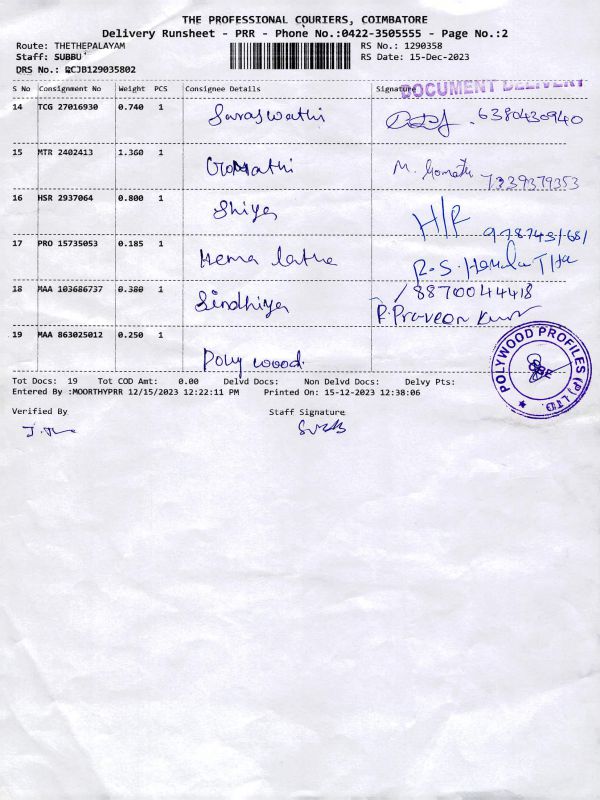 THE PROFESSIONAL COURIERS, COIMBATORE
Delivery Runsheet - PRR - Phone No.:0422-3505555 - Page No.:2
Route: THETHEPALAYAM RS No.: 1290358
Staff: SUBBU RS Date: 15-Dec-2023
DRS No.: RCJB129035802
DOCUMENT DELIVERY
S No Consignment No Weight PCS Consignee Details Signature
14 TCG 27016930 0.740 1 Saraswathi 6380430940
15 MTR 2402413 1.360 1 Gomathi M. Gomathi 7339379353
16 HSR 2937064 0.800 1 Shiya H/R
17 PRO 15735053 0.185 1 Hema latha R.S. Hemala Tha
18 MAA 103686737 0.380 1 Sindhiya /8870044418
R. Praveen Kumar
19 MAA 863025012 0.250 1 Poly wood.
POLYWOOD PROFILES (P) LTD.
Tot Docs: 19 Tot COD Amt: 0.00 Delvd Docs: Non Delvd Docs: Delvy Pts:
Entered By :MOORTHYPRR 12/15/2023 12:22:11 PM Printed On: 15-12-2023 12:38:06
Verified By Staff Signature